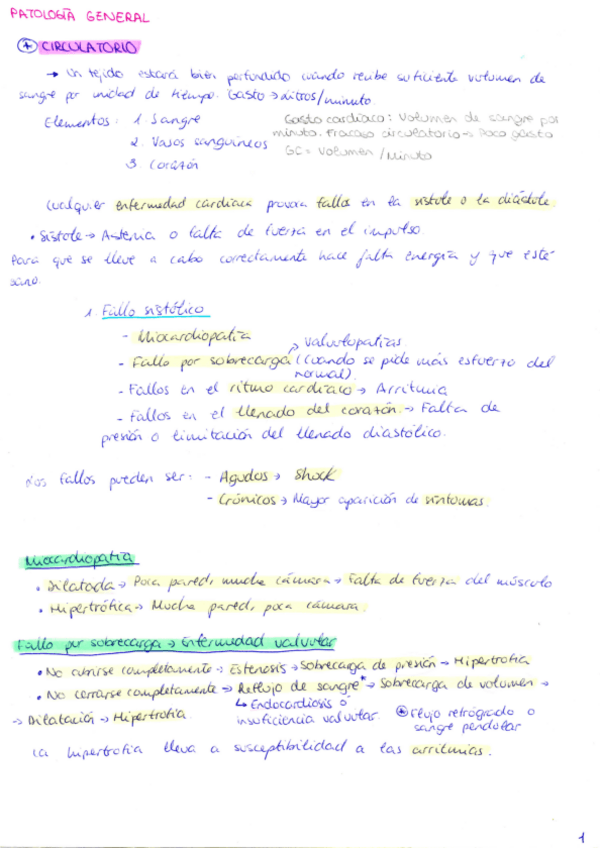 PATOLOGÍA GENERAL
+ CIRCULATORIO
→ Un tejido estará bien perfundido cuando recibe suficiente volumen de
sangre por unidad de tiempo. Gasto → litros/minuto.
Elementos: 1. Sangre
2. Vasos sanguíneos
3 Corazón
Gasto cardiaco: Volumen de sangre por
minuto. Fracaso circulatorio → Poco gasto
GC = Volumen / Minuto
Cualquier enfermedad cardiaca provoca fallos en la sístole o la diástole.
• Sístole → Astenia o falta de fuerza en el impulso
Para que se lleve a cabo correctamente hace falta energía y que esté
sano.
1. Fallo sistólico
- Miocardiopatía
Valvulopatías
- Fallo por sobrecarga (Cuando se pide más esfuerzo del
normal).
- Fallos en el ritmo cardiaco → Arritmia
- Fallos en el llenado del corazón. → Falta de
presión o limitación del llenado diastólico.
Los fallos pueden ser: - Agudos → Shock
- Crónicos → Mayor aparición de síntomas.
Miocardiopatía
• Dilatada → Poca pared, mucha cámara → Falta de fuerza del músculo
• Hipertrófica → Mucha pared, poca cámara.
Fallo por sobrecarga → Enfermedad valvular
• No abrirse completamente → Estenosis → Sobrecarga de presión → Hipertrofia
• No cerrarse completamente → Reflujo de sangre* → Sobrecarga de volumen →
→ Dilatación → Hipertrofia.
↳ Endocardiosis o
insuficiencia valvular.
* Flujo retrógrado o
sangre pendular
La hipertrofia lleva a susceptibilidad a las arritmias.
1